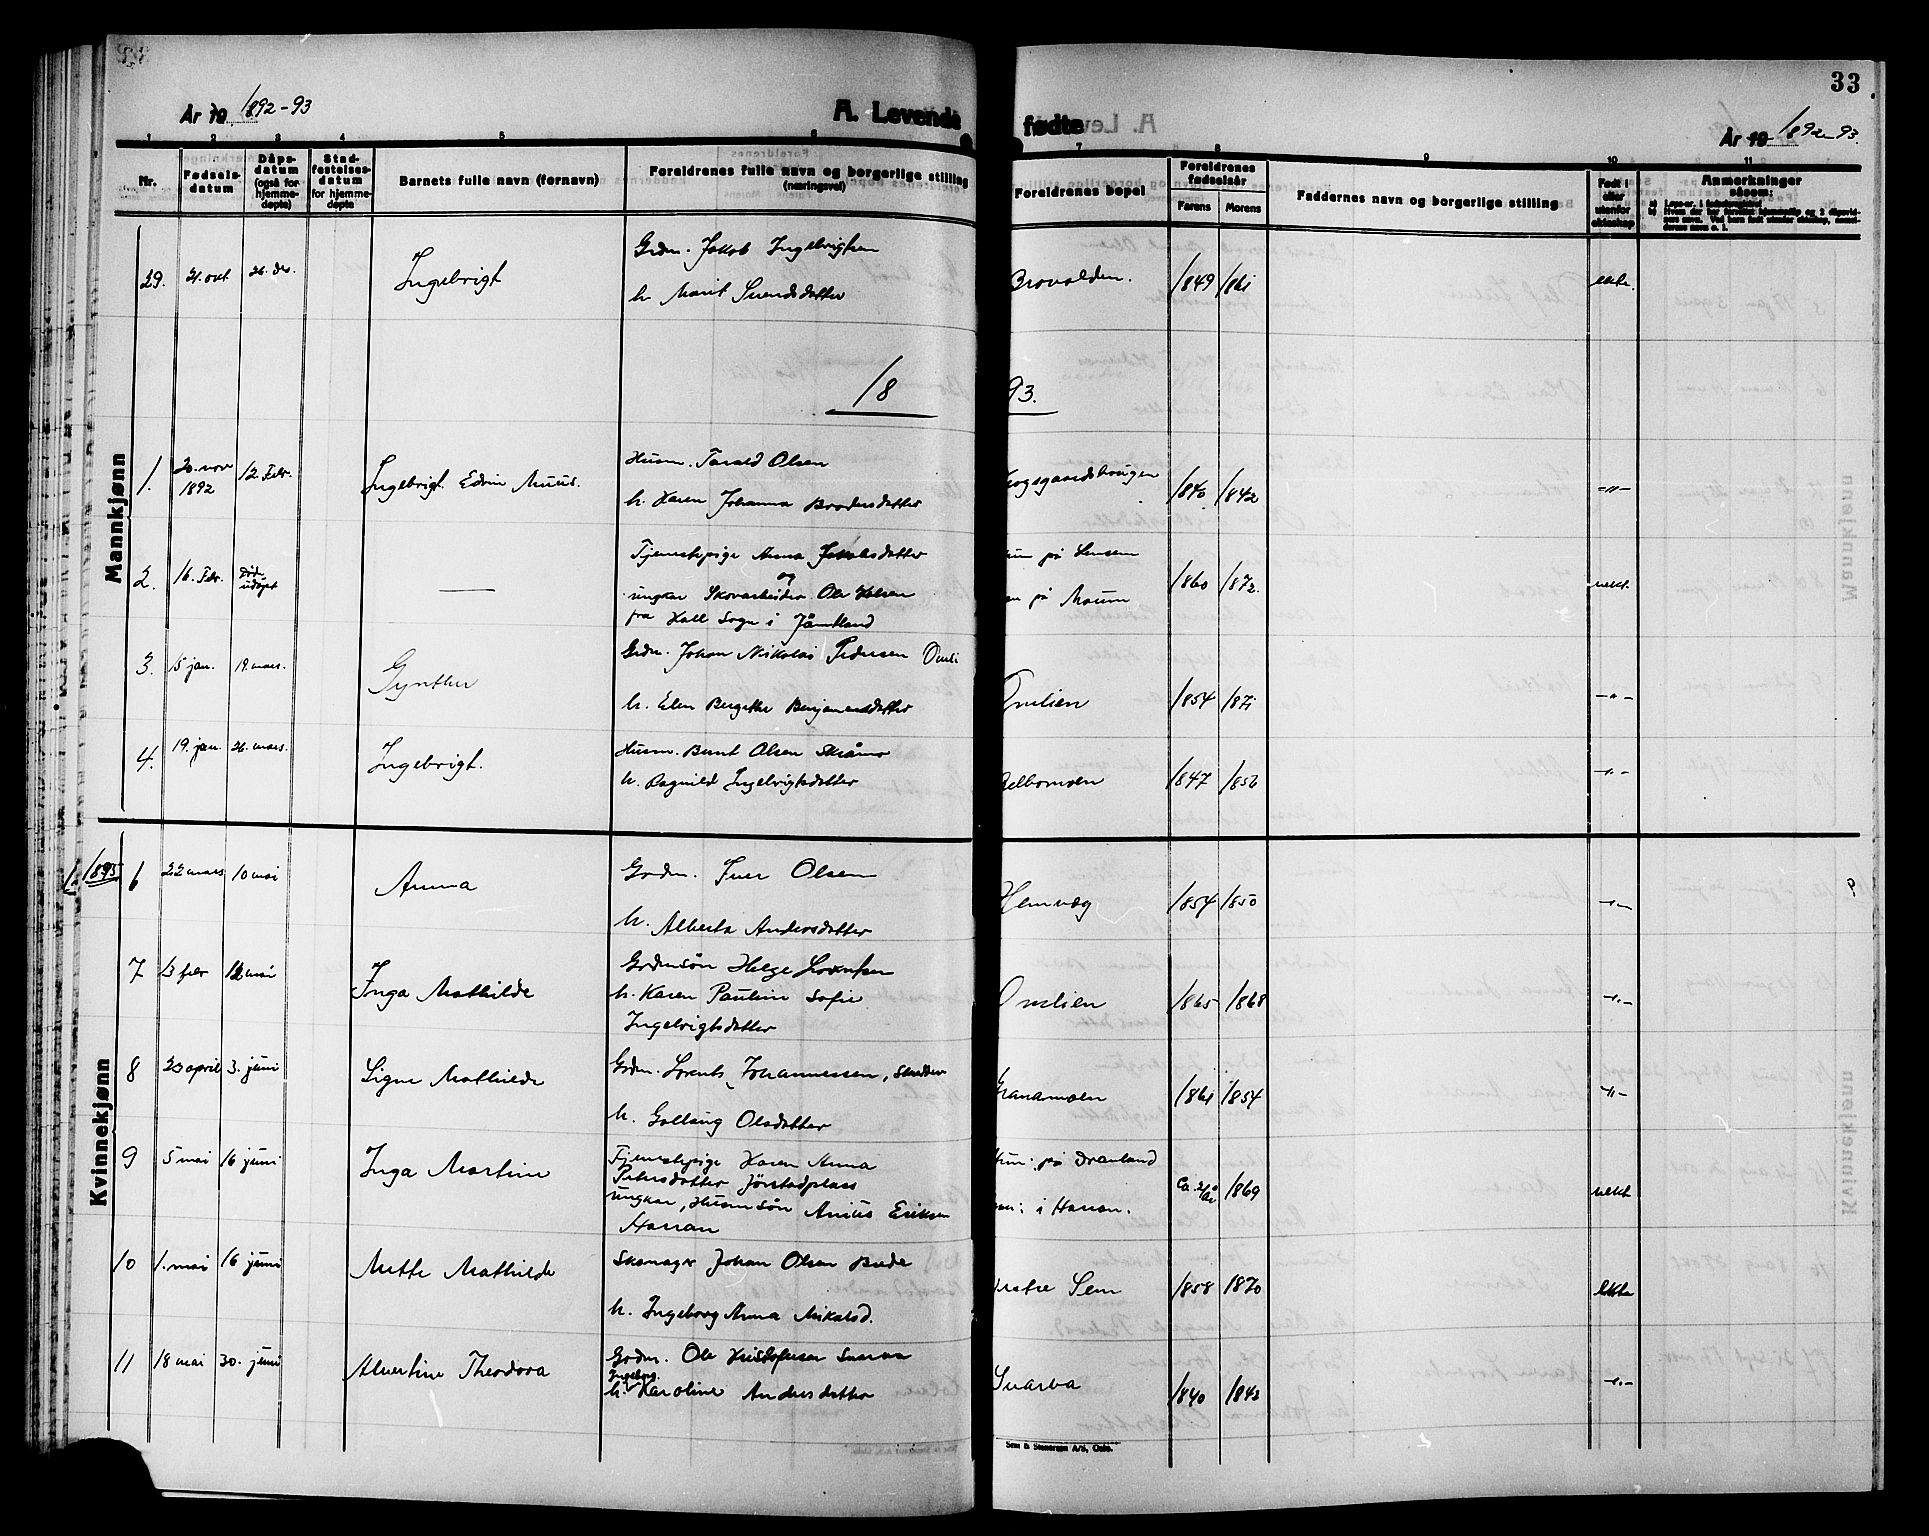 33
År 19 1892-93
A. Levende fødte
År 19 1892-93.
1 2 3 4 5 6 7 8 9 10 11
Nr.
Fødselsdatum
Dåpsdatum (også for hjemmedøpte)
Stadfestelsesdatum for hjemmedøpte
Barnets fulle navn (fornavn)
Foreldrenes fulle navn og borgerlige stilling (næringsvei)
Foreldrenes bopel
Foreldrenes fødselsår
Farens Morens
Faddernes navn og borgerlige stilling
Født i eller utenfor ekteskap
Anmerkninger såsom:
29. 21. okt 26. des. Ingebrigt Grdm. Jakob Ingebrigtsen
h. Marit Svendsdatter
Brovolden. 1849 1861 ekte.
1893.
Mannkjønn
1. 20. nov 1892 12 Febr. Ingebrigt Edvin Muus. Husm. Tarald Olsen
h. Karen Johanna Brodersdatter
1840 1842 -"-
2. 16. Febr. Død udøpt — Tjenestepige Anna Jakobsdatter
og
ungkar Skovarbeider Ole Olsen
fra Kall Sogn i Jämtland
hun på Semsem
han på Moum
1860 1872. uekt.
3. 15 jan. 19. mars. Gynther Grdm. Johan Nikolai Pedersen Omli
h. Elen Bergitte Benjaminsdatter
Omlien 1854 1871 -"-
4. 19. jan. 26. mars. Ingebrigt. Husm. Bernt Olsen Skåmo
h. Ragnild Ingebrigtsdatter
1847 1856 -"-
Kvinnekjønn
1893
6 22 mars 10 mai Anna Grdm. Iver Olsen
h. Alberta Andersdatter
Hemvæg 1854 1850 -"- ?
7 13 febr 12 mai Inga Mathilde Grdmsøn Helge Lorntsen
h. Karen Pauline Sofie
Ingebrigtsdatter
Omlien 1865 1868 -"-
8 23 april 3. juni Signe Mathilde Grdm. Lorents Johannessen, Skrædder
h. Gollaug Olsdatter
Grandmoen 1861 1854 -"-
9 5 mai 16 juni Inga Martine Tjenestepige Karen Anna
Petersdatter Jørstadplass
ungkar, Husmsøn Anius Eriksen
Harran
hun: på Devland
han: i Harran.
Ca. 21 år 1869 uekt
10 1. mai 16 juni Mette Mathilde Skomager Johan Olsen Brede
h. Ingeborg Anna Nikolsd.
østre Sem 1858 1870 ekte
11 18 mai 30. juni Alvertine Theodora Grdm. Ole Kristofersen Snarva
Ingeborg
h. Karoline Andersdatter
Snarva 1840 1848 -"-
Sem & Stenersen A/S, Oslo.